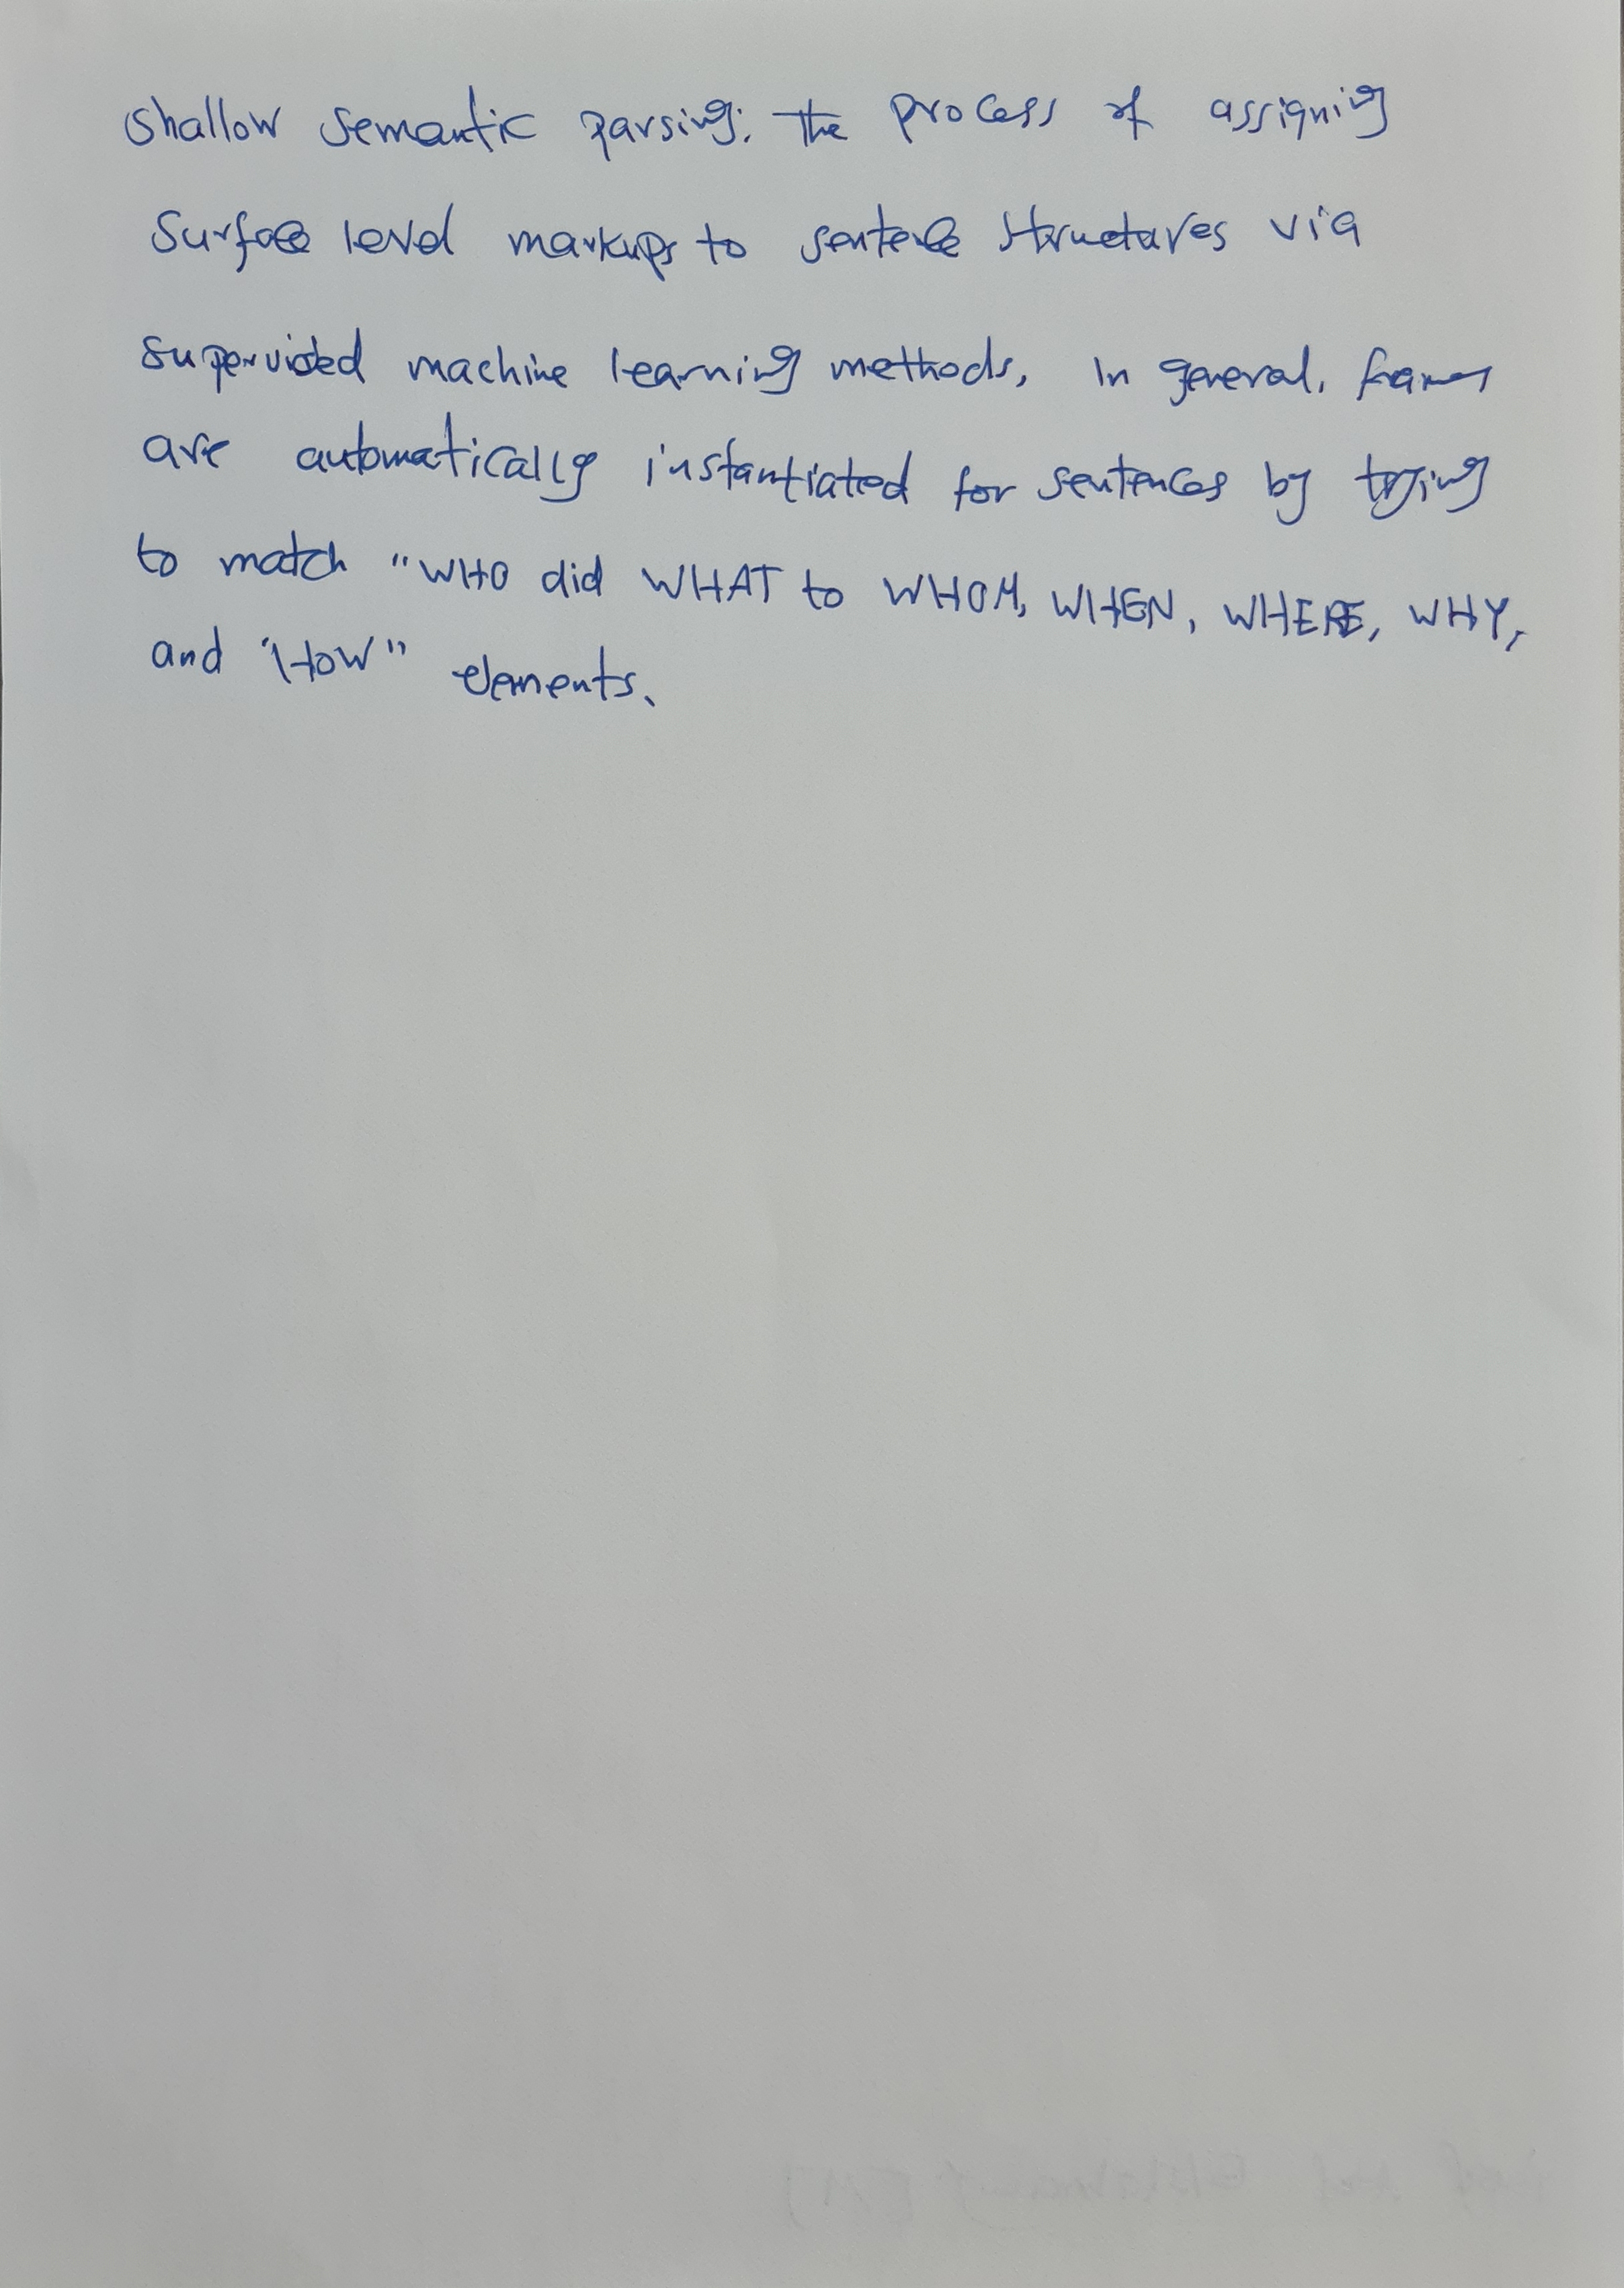 shallow semantic parsing: the process of assigning
surface level markups to sentence structures via
supervised machine learning methods. In general, frames
are automatically instantiated for sentences by trying
to match "WHO did WHAT to WHOM, WHEN, WHERE, WHY,
and HOW" elements.